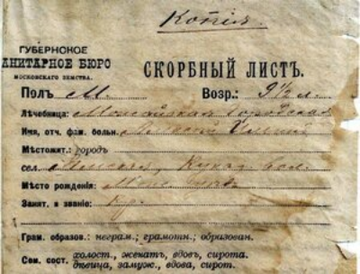 Копія.
ГУБЕРНСКОЕ
САНИТАРНОЕ БЮРО
МОСКОВСКАГО ЗЕМСТВА.
СКОРБНЫЙ ЛИСТЪ.
Полъ М. Возр.: 9½ л.
Лѣчебница: Можайская Городская
Имя, отч. фам. больн.
Мѣстожит.: городъ
сел.
Мѣсто рожденія:
Занят. и званіе: Кр.
Грам. образов.: неграм.; грамотн.; образован.
Сем. сост. холост., женатъ, вдовъ, сирота.
дѣвица, замуж., вдова, сирот.